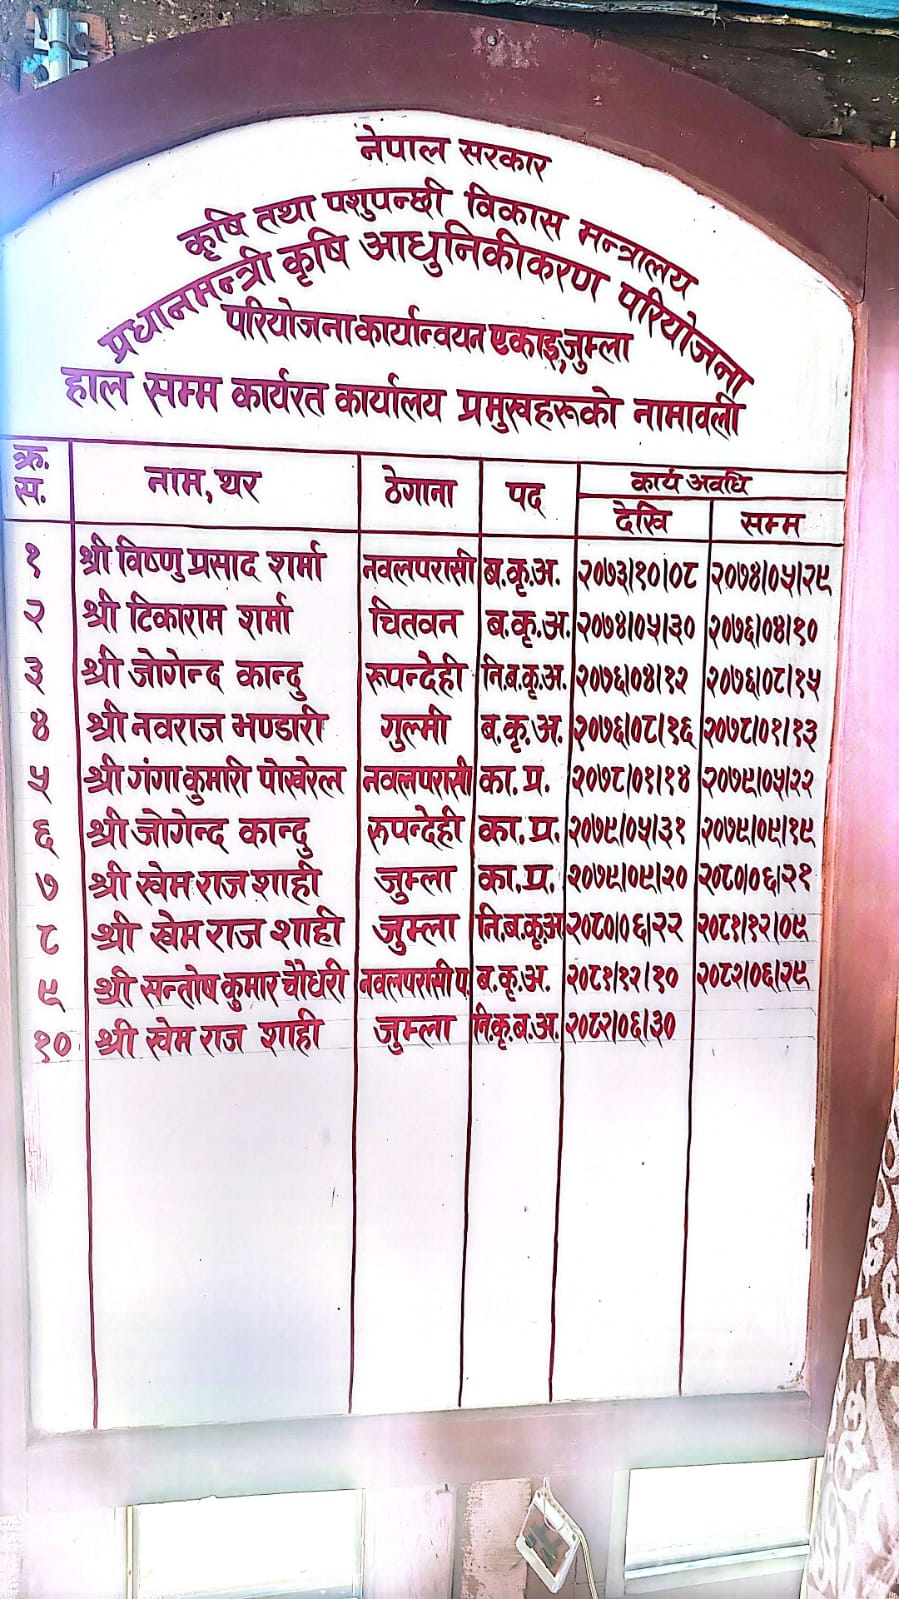 नेपाल सरकार
कृषि तथा पशुपन्छी विकास मन्त्रालय
प्रधानमन्त्री कृषि आधुनिकीकरण परियोजना
परियोजना कार्यान्वयन एकाइ,जुम्ला
हाल सम्म कार्यरत कार्यालय प्रमुखहरूको नामावली
क्र.स. नाम, थर ठेगाना पद कार्य अवधि
देखि सम्म
१ श्री विष्णु प्रसाद शर्मा नवलपरासी ब.कृ.अ. २०७३/१०/०८ २०७४/०५/२९
२ श्री टिकाराम शर्मा चितवन ब.कृ.अ. २०७४/०५/३० २०७६/०४/१०
३ श्री जोगेन्द कान्दु रूपन्देही नि.ब.कृ.अ. २०७६/०४/१२ २०७६/०८/१५
४ श्री नवराज भण्डारी गुल्मी ब.कृ.अ. २०७६/०८/१६ २०७८/०१/१३
५ श्री गंगा कुमारी पोखरेल नवलपरासी का.प्र. २०७८/०१/१४ २०७९/०५/२२
६ श्री जोगेन्द कान्दु रूपन्देही का.प्र. २०७९/०५/३१ २०७९/०९/१९
७ श्री खेम राज शाही जुम्ला का.प्र. २०७९/०९/२० २०८०/०६/२१
८ श्री खेम राज शाही जुम्ला नि.ब.कृ.अ २०८०/०६/२२ २०८१/१२/०९
९ श्री सन्तोष कुमार चौधरी नवलपरासी प. ब.कृ.अ. २०८१/१२/१० २०८२/०६/२९
१० श्री खेम राज शाही जुम्ला नि.कृ.ब.अ. २०८२/०६/३०